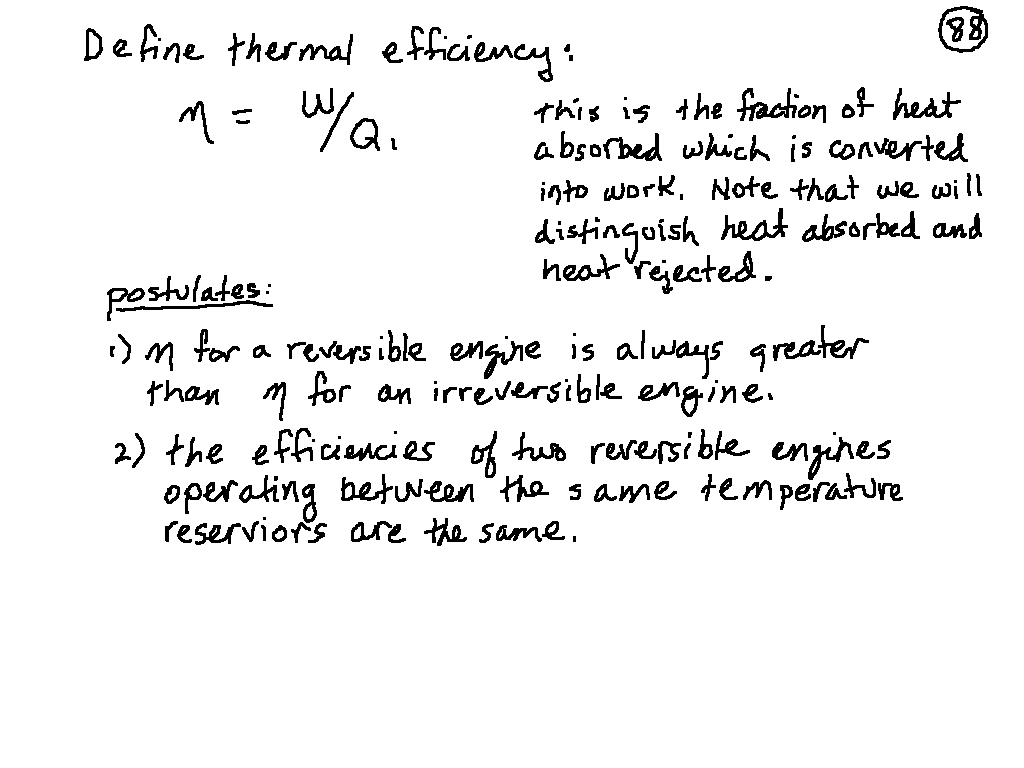 88
Define thermal efficiency:
η = W/Q₁
this is the fraction of heat
absorbed which is converted
into work. Note that we will
distinguish heat absorbed and
heat rejected.
postulates:
1) η for a reversible engine is always greater
than η for an irreversible engine.
2) the efficiencies of two reversible engines
operating between the same temperature
reserviors are the same.